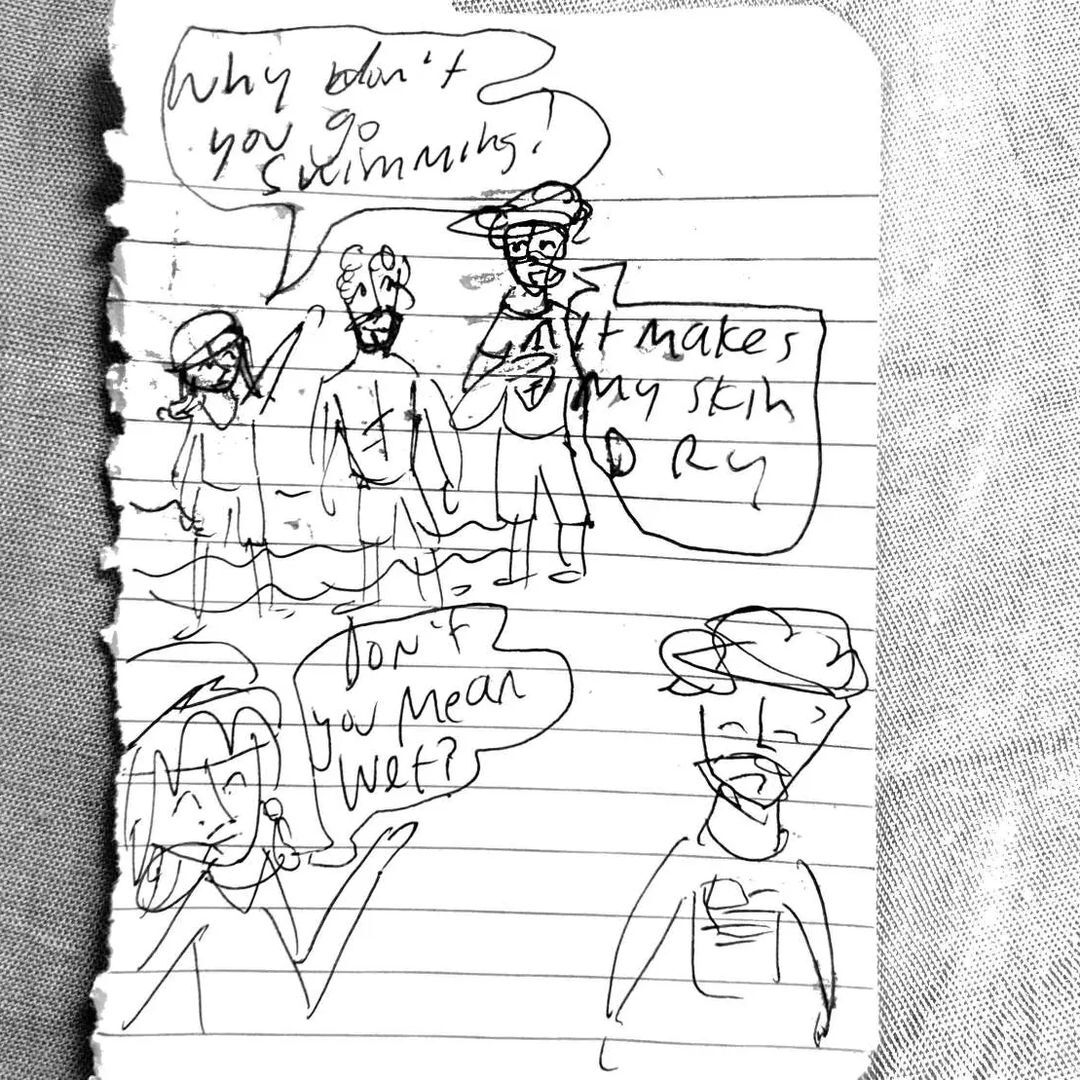 Why don't
you go
swimming!
It makes
my skin
DRy
Don't
you Mean
wet?